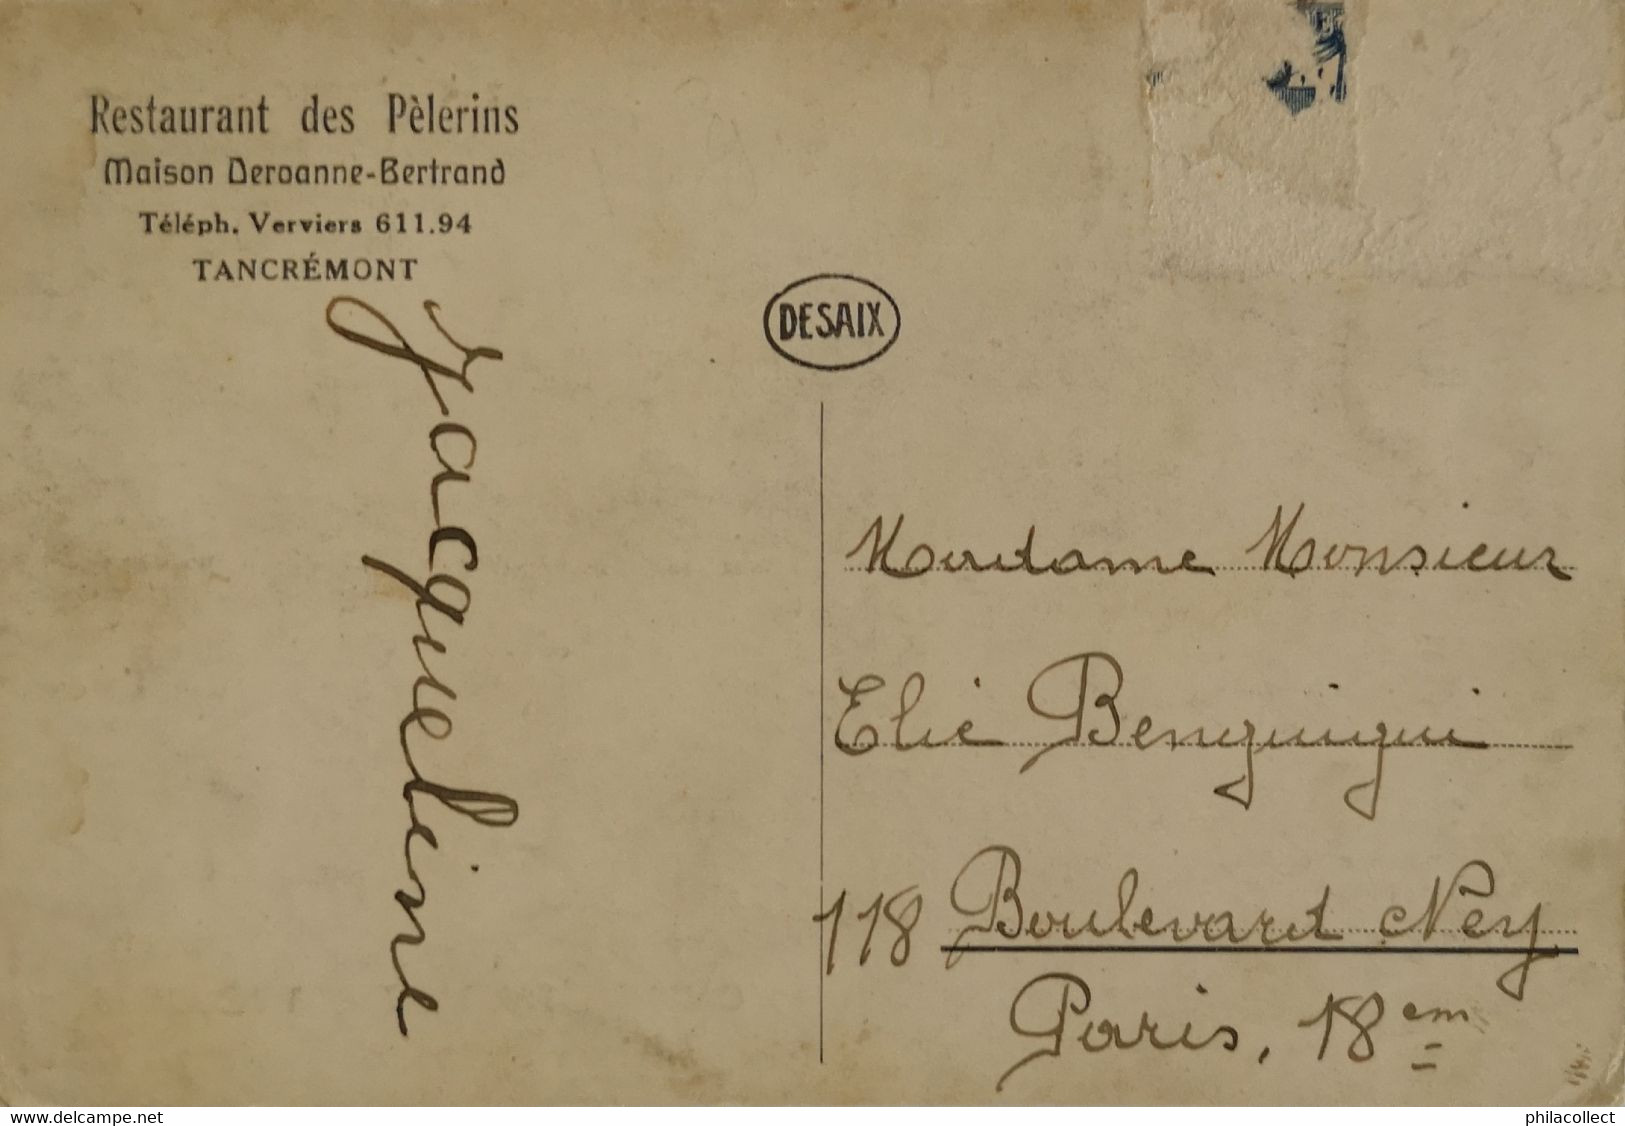 Restaurant des Pèlerins
Maison Deroanne-Bertrand
Téléph. Verviers 611.94
TANCRÉMONT
Jacqueline
DESAIX
Madame Monsieur
Elie Benguigui
118 Boulevard Ney
Paris, 18em
www.delcampe.net
philacollect